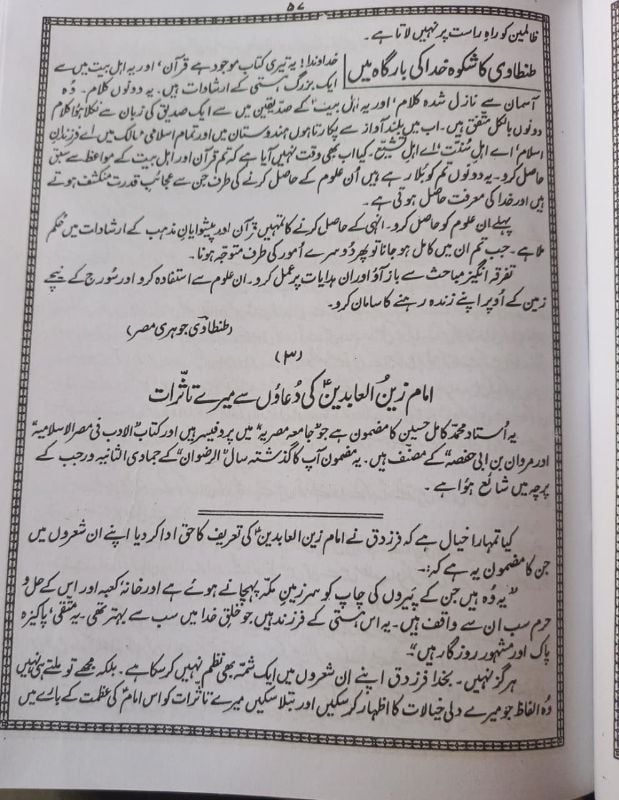 ۵۷
ظالمین کو راہِ راست پر نہیں لاتا ہے۔
طنطاوی کا شکوہ خدا کی بارگاہ میں
خداوندا! یہ تیری کتاب موجود ہے قرآن، اور یہ اہل بیت میں سے
ایک بزرگ ہستی کے ارشادات ہیں۔ یہ دونوں کلام۔ وُہ
آسمان سے نازل شدہ کلام، اور یہ اہل بیتؑ کے صدیقین میں سے ایک صدیق کی زبان سے نکلا ہوا کلام
دونوں بالکل متفق ہیں۔ اب میں بلند آواز سے پکارتا ہوں ہندوستان میں اور تمام اسلامی ممالک میں اے فرزندانِ
اسلام، اے اہلِ سُنّت، اے اہلِ تشیّع۔ کیا اب بھی وقت نہیں آیا ہے کہ تم قرآن اور اہل بیت کے مواعظ سے سبق
حاصل کرو۔ یہ دونوں تم کو بُلا رہے ہیں اُن علوم کے حاصل کرنے کی طرف جن سے عجائب قدرت منکشف ہوتے
ہیں اور خدا کی معرفت حاصل ہوتی ہے۔
پہلے ان علوم کو حاصل کرو۔ انہی کے حاصل کرنے کا تمہیں قرآن اور پیشوایانِ مذہب کے ارشادات میں حکم
ملا ہے۔ جب تم ان میں کامل ہو جانا تو پھر دُوسرے اُمور کی طرف متوجّہ ہونا۔
تفرقہ انگیز مباحث سے باز آؤ اور ان ہدایات پر عمل کرو۔ ان علوم سے استفادہ کرو اور سُورج کے نیچے
زمین کے اُوپر اپنے زندہ رہنے کا سامان کرو۔
(طنطاوی جوہری مصر)
(۳)
امام زینُ العابدینؑ کی دُعاؤں سے میرے تاثّرات
یہ اُستاد محمّد کامل حسین کا مضمون ہے جو "جامعہ مصریہ" میں پروفیسر ہیں اور کتاب "الادب فی مصر الاسلامیہ"
اور "مروان بن ابی حفصہ" کے مصنّف ہیں۔ یہ مضمون آپ کا گذشتہ سال "الرضوان" کے جمادی الثانیہ و رجب کے
پرچہ میں شائع ہؤا ہے۔
کیا تمہارا خیال ہے کہ فرزدق نے امام زین العابدینؑ کی تعریف کا حق ادا کر دیا اپنے ان شعروں میں
جن کا مضمون یہ ہے کہ:۔
"یہ وُہ ہیں جن کے پَیروں کی چاپ کو سرزمینِ مکّہ پہچانے ہوئے ہے اور خانہ کعبہ اور اس کے حل و
حرم سب ان سے واقف ہیں۔ یہ اس ہستی کے فرزند ہیں جو خلقِ خدا میں سب سے بہتر تھی۔ یہ متّقی، پاکیزہ
پاک اور مشہورِ روزگار ہیں"۔
ہرگز نہیں۔ بخدا فرزدق اپنے ان شعروں میں ایک شمّہ بھی نظم نہیں کر سکا ہے۔ بلکہ مجھے تو ملتے ہی نہیں
وُہ الفاظ جو میرے دلی خیالات کا اظہار کر سکیں اور بتلا سکیں میرے تاثرات کو اس امامؑ کی عظمت کے بارے میں